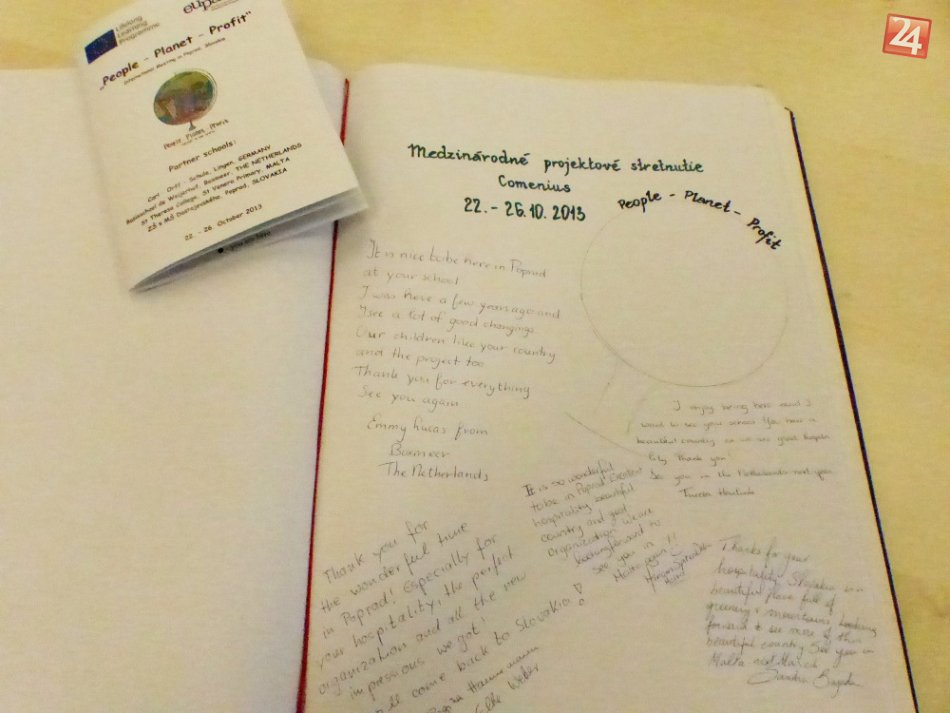 Lifelong
Learning
Programme
"People - Planet - Profit"
International Meeting in Poprad, Slovakia
People Planet Profit
Partner schools:
Carl - Orff - Schule, Lingen, GERMANY
Basisschool de Weijerhof, Boxmeer, THE NETHERLANDS
St Theresa College, St Venera Primary, MALTA
ZŠ s MŠ Dostojevského, Poprad, SLOVAKIA
22. - 26. October 2013
24
Medzinárodné projektové stretnutie
Comenius
22. - 26.10. 2013
People - Planet - Profit
It is nice to be here in Poprad
at your school
I was here a few years ago and
I see a lot of good changings
Our children like your country
and the project too
Thank you for everything
See you again
Emmy Lucas from
Boxmeer
The Netherlands
I enjoy being here and I
want to see you across You have a
beautiful country as we see good
Thank you!
See you in the Netherlands next year
It is so wonderful
to be in Poprad Excellent
hospitality beautiful
country and good
organization we are
looking forward to
see you in
Malta again!!
Thank you for
the wonderful time
in Poprad! Especially for
your hospitality, the perfect
organization and all the new
impressions we got!
come back to Slovakia!
Elke Weber
Thanks for your
hospitality. Slovakia is a
beautiful place full of
greenery & mountains. Looking
forward to see more of this
beautiful country. See you in
Malta next March
Sandra